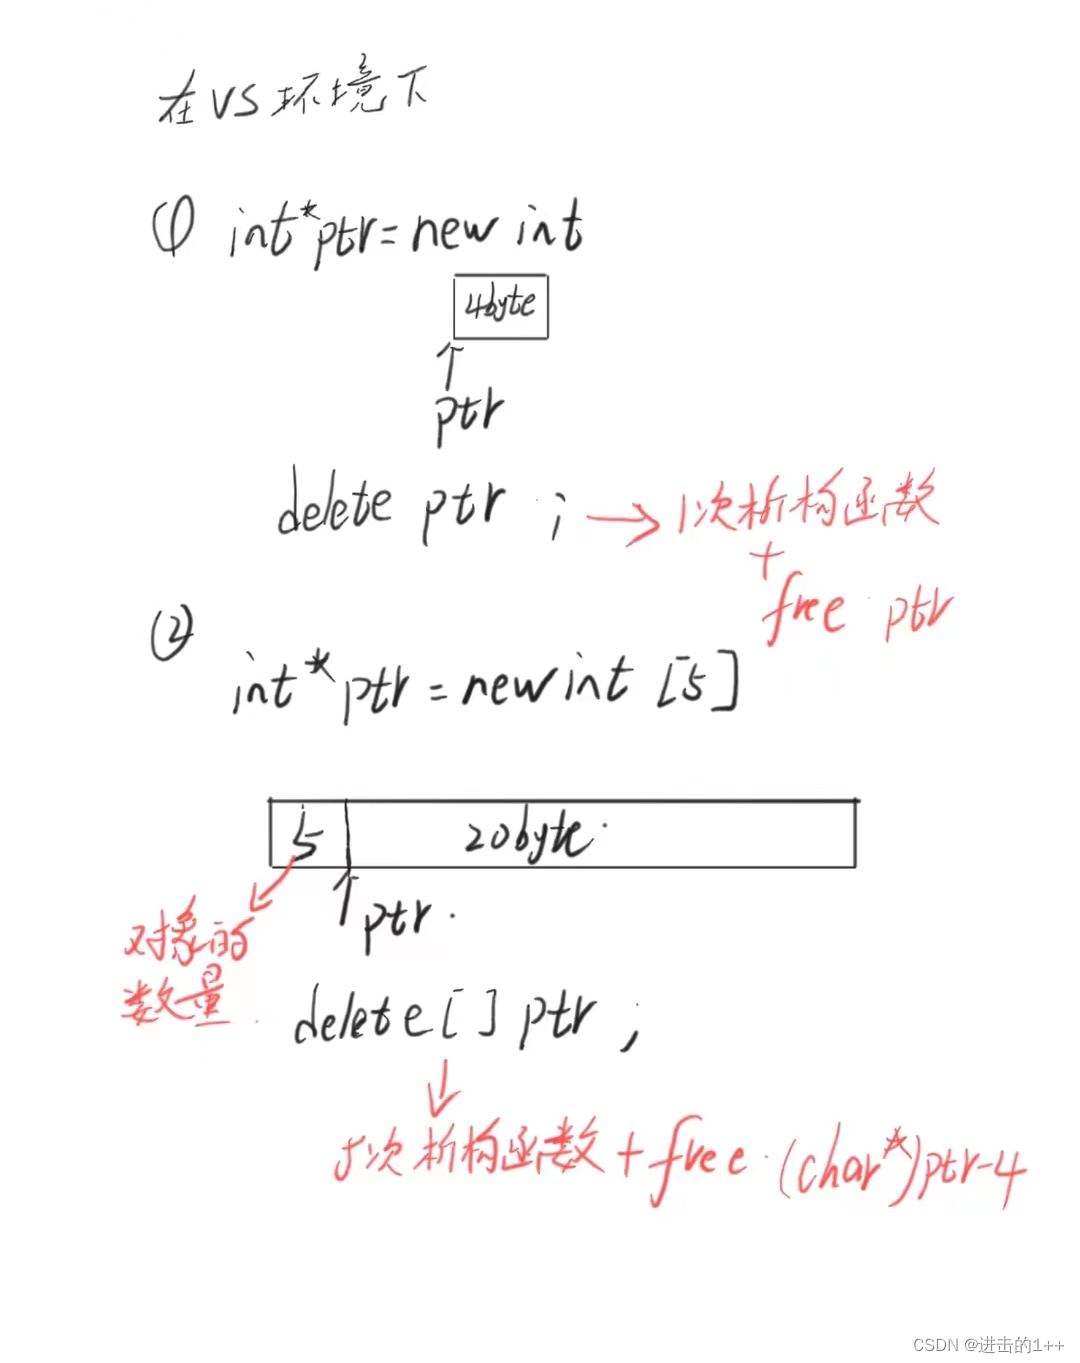 在VS环境下
① int*ptr=new int
4byte
ptr
delete ptr ; 1次析构函数
+
free ptr
②
int*ptr=new int [5]
5 20byte
ptr
对象的
数量
delete[] ptr ;
5次析构函数+free (char*)ptr-4
CSDN @进击的1++